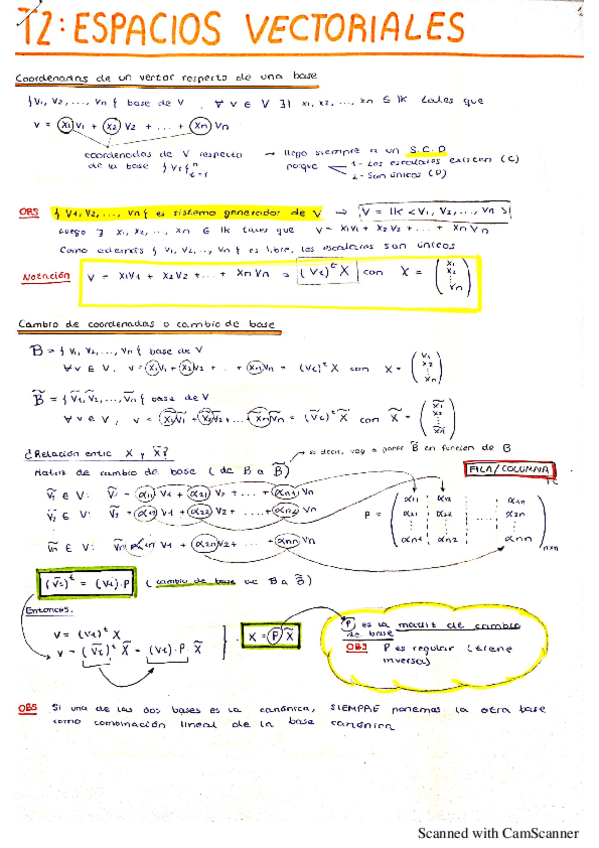 T2: ESPACIOS VECTORIALES
Coordenadas de un vector respecto de una base
{v1, v2, ..., vn} base de V . ∀ v ∈ V ∃! x1, x2, ..., xn ⊆ lk tales que
v = x1v1 + x2v2 + ... + xnvn
coordenadas de V respecto → llego siempre a un S.C.D
de la base {vi} porque 1- Los escalares existen (C)
2- Son únicos (D)
OBS { v1, v2, ..., vn } es sistema generador de V ⇒ V = lk < v1, v2, ..., vn >
Luego ∃ x1, x2, ..., xn ∈ lk tales que v = x1v1 + x2v2 + ... + xnvn
Como además { v1, v2, ..., vn } es libre, los escalares son únicos
Notación v = x1v1 + x2v2 + ... + xnvn = (vi)^t X con X = (x1 x2 ⋮ vn)
Cambio de coordenadas o cambio de base
B = { v1, v2, ..., vn } base de V
∀ v ∈ V, v = x1v1 + x2v2 + ... + xnvn = (vi)^t X con X = (x1 x2 ⋮ xn)
B̃ = { ṽ1, ṽ2, ..., ṽn } base de V
∀ v ∈ V, v = x̃1ṽ1 + x̃2ṽ2 + ... + x̃nṽn = (ṽi)^t X̃ con X̃ = (x̃1 x̃2 ⋮ x̃n)
¿Relación entre X y X̃? → es decir, voy a poner B̃ en función de B
Matriz de cambio de base (de B a B̃) FILA/COLUMNA
ṽ1 ∈ V: ṽ1 = α11 v1 + α21 v2 + ... + αn1 vn
ṽ2 ∈ V: ṽ2 = α12 v1 + α22 v2 + ... + αn2 vn
ṽn ∈ V: ṽn = α1n v1 + α2n v2 + ... + αnn vn
P = (α11 α12 ... α1n
α21 α22 ... α2n
αn1 αn2 ... αnn) n×n
(ṽi)^t = (vi)·P (cambio de base de B a B̃)
Entonces:
v = (vi)^t X
v = (ṽi)^t X̃ = (vi)·P·X̃
X = P X̃
P es la matriz de cambio
de base
OBS P es regular (tiene
inversa)
OBS Si una de las dos bases es la canónica, SIEMPRE ponemos la otra base
como combinación lineal de la base canónica
Scanned with CamScanner